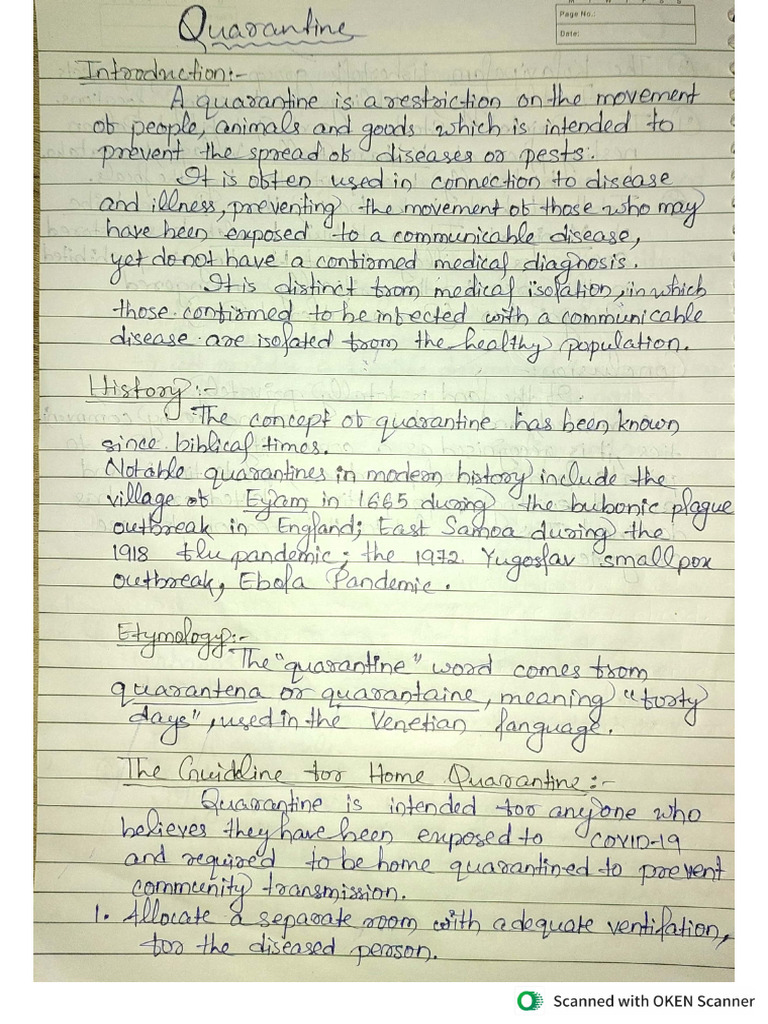 Quarantine
Page No.:
Date:
Introduction:-
A quarantine is a restriction on the movement
of people, animals and goods which is intended to
prevent the spread of diseases or pests.
It is often used in connection to disease
and illness, preventing the movement of those who may
have been exposed to a communicable disease,
yet do not have a confirmed medical diagnosis.
It is distinct from medical isolation, in which
those confirmed to be infected with a communicable
disease are isolated from the healthy population.
History:-
The concept of quarantine has been known
since biblical times.
Notable quarantines in modern history include the
village of Eyam in 1665 during the bubonic plague
outbreak in England; East Samoa during the
1918 flu pandemic; the 1972 Yugoslav smallpox
outbreak, Ebola Pandemic.
Etymology:-
The "quarantine" word comes from
quarantena or quarantaine, meaning "forty
days", used in the Venetian language.
The Guideline for Home Quarantine:-
Quarantine is intended for anyone who
believes they have been exposed to COVID-19
and required to be home quarantined to prevent
community transmission.
1. Allocate a separate room with adequate ventilation,
for the diseased person.
Scanned with OKEN Scanner